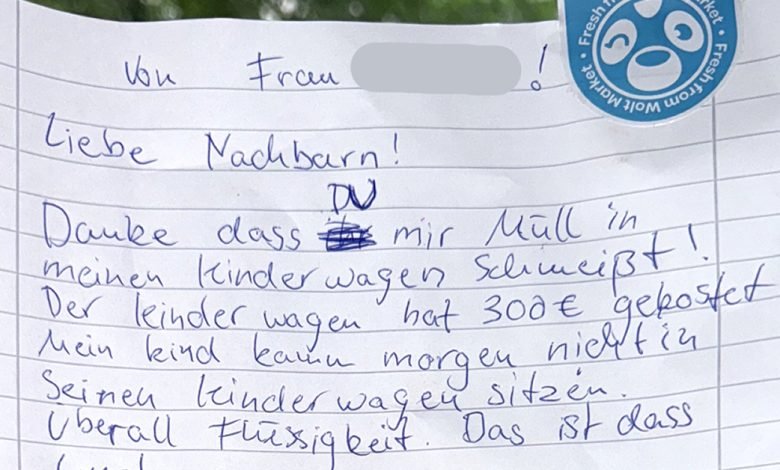 Von Frau !
Liebe Nachbarn!
DU
Danke dass mir Müll in
meinen Kinderwagen Schmeißt!
Der kinderwagen hat 300€ gekostet
Mein kind kann morgen nicht in
Seinen kinderwagen sitzen.
Überall Flüssigkeit. Das ist dass
Fresh from Wolt Market • Fresh from Wolt Market •